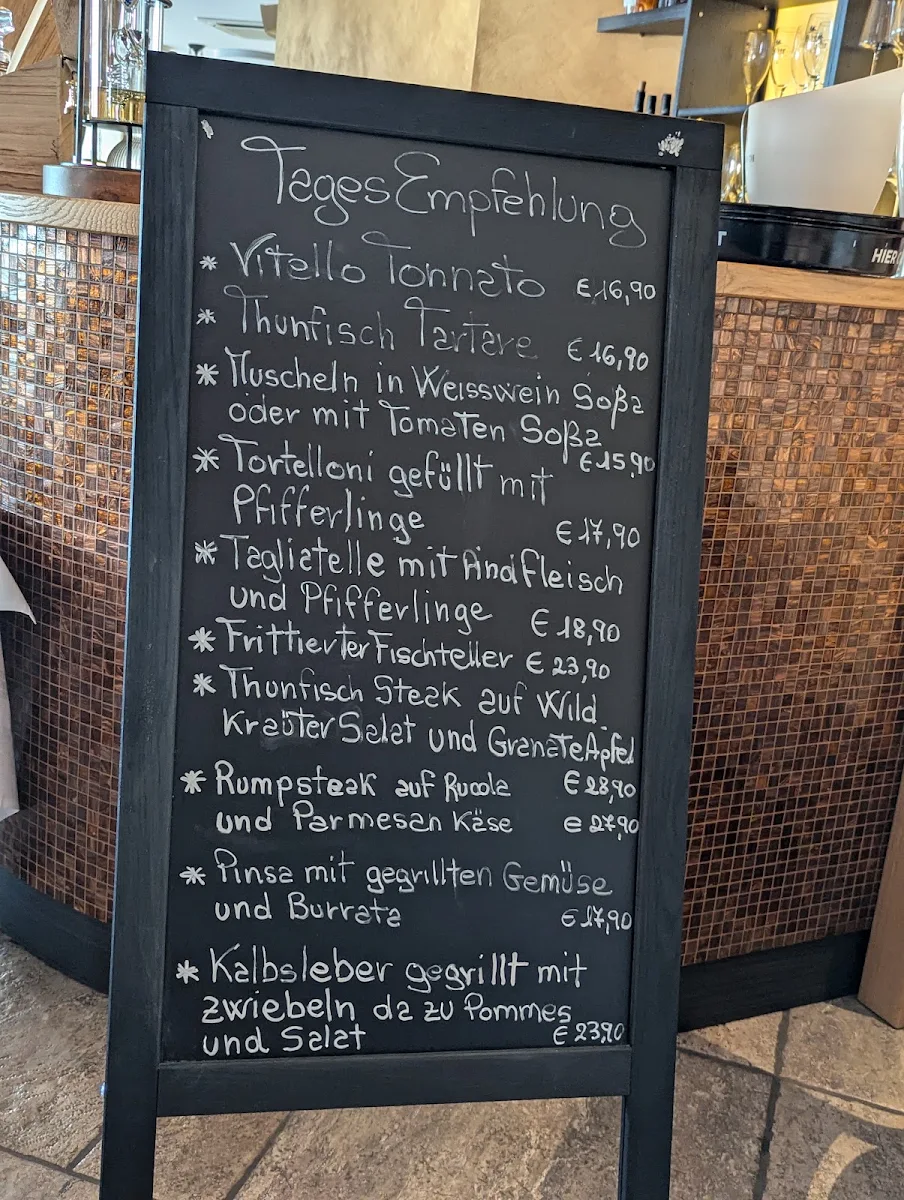 TagesEmpfehlung
* Vitello Tonnato € 16,90
* Thunfisch Tartare € 16,90
* Muscheln in Weisswein Soßa
oder mit Tomaten Soßa
€ 15,90
* Tortelloni gefüllt mit
Pfifferlinge € 17,90
* Tagliatelle mit Rindfleisch
und Pfifferlinge € 18,90
* Frittierter Fischteller € 23,90
* Thunfisch Steak auf Wild
Kraüter Salat und GranateApfel
€ 28,90
* Rumpsteak auf Rucola
und Parmesan Käse € 27,90
* Pinsa mit gegrillten Gemüse
und Burrata € 17,90
* Kalbsleber gegrillt mit
zwiebeln da zu Pommes
und Salat € 23,90
HIER